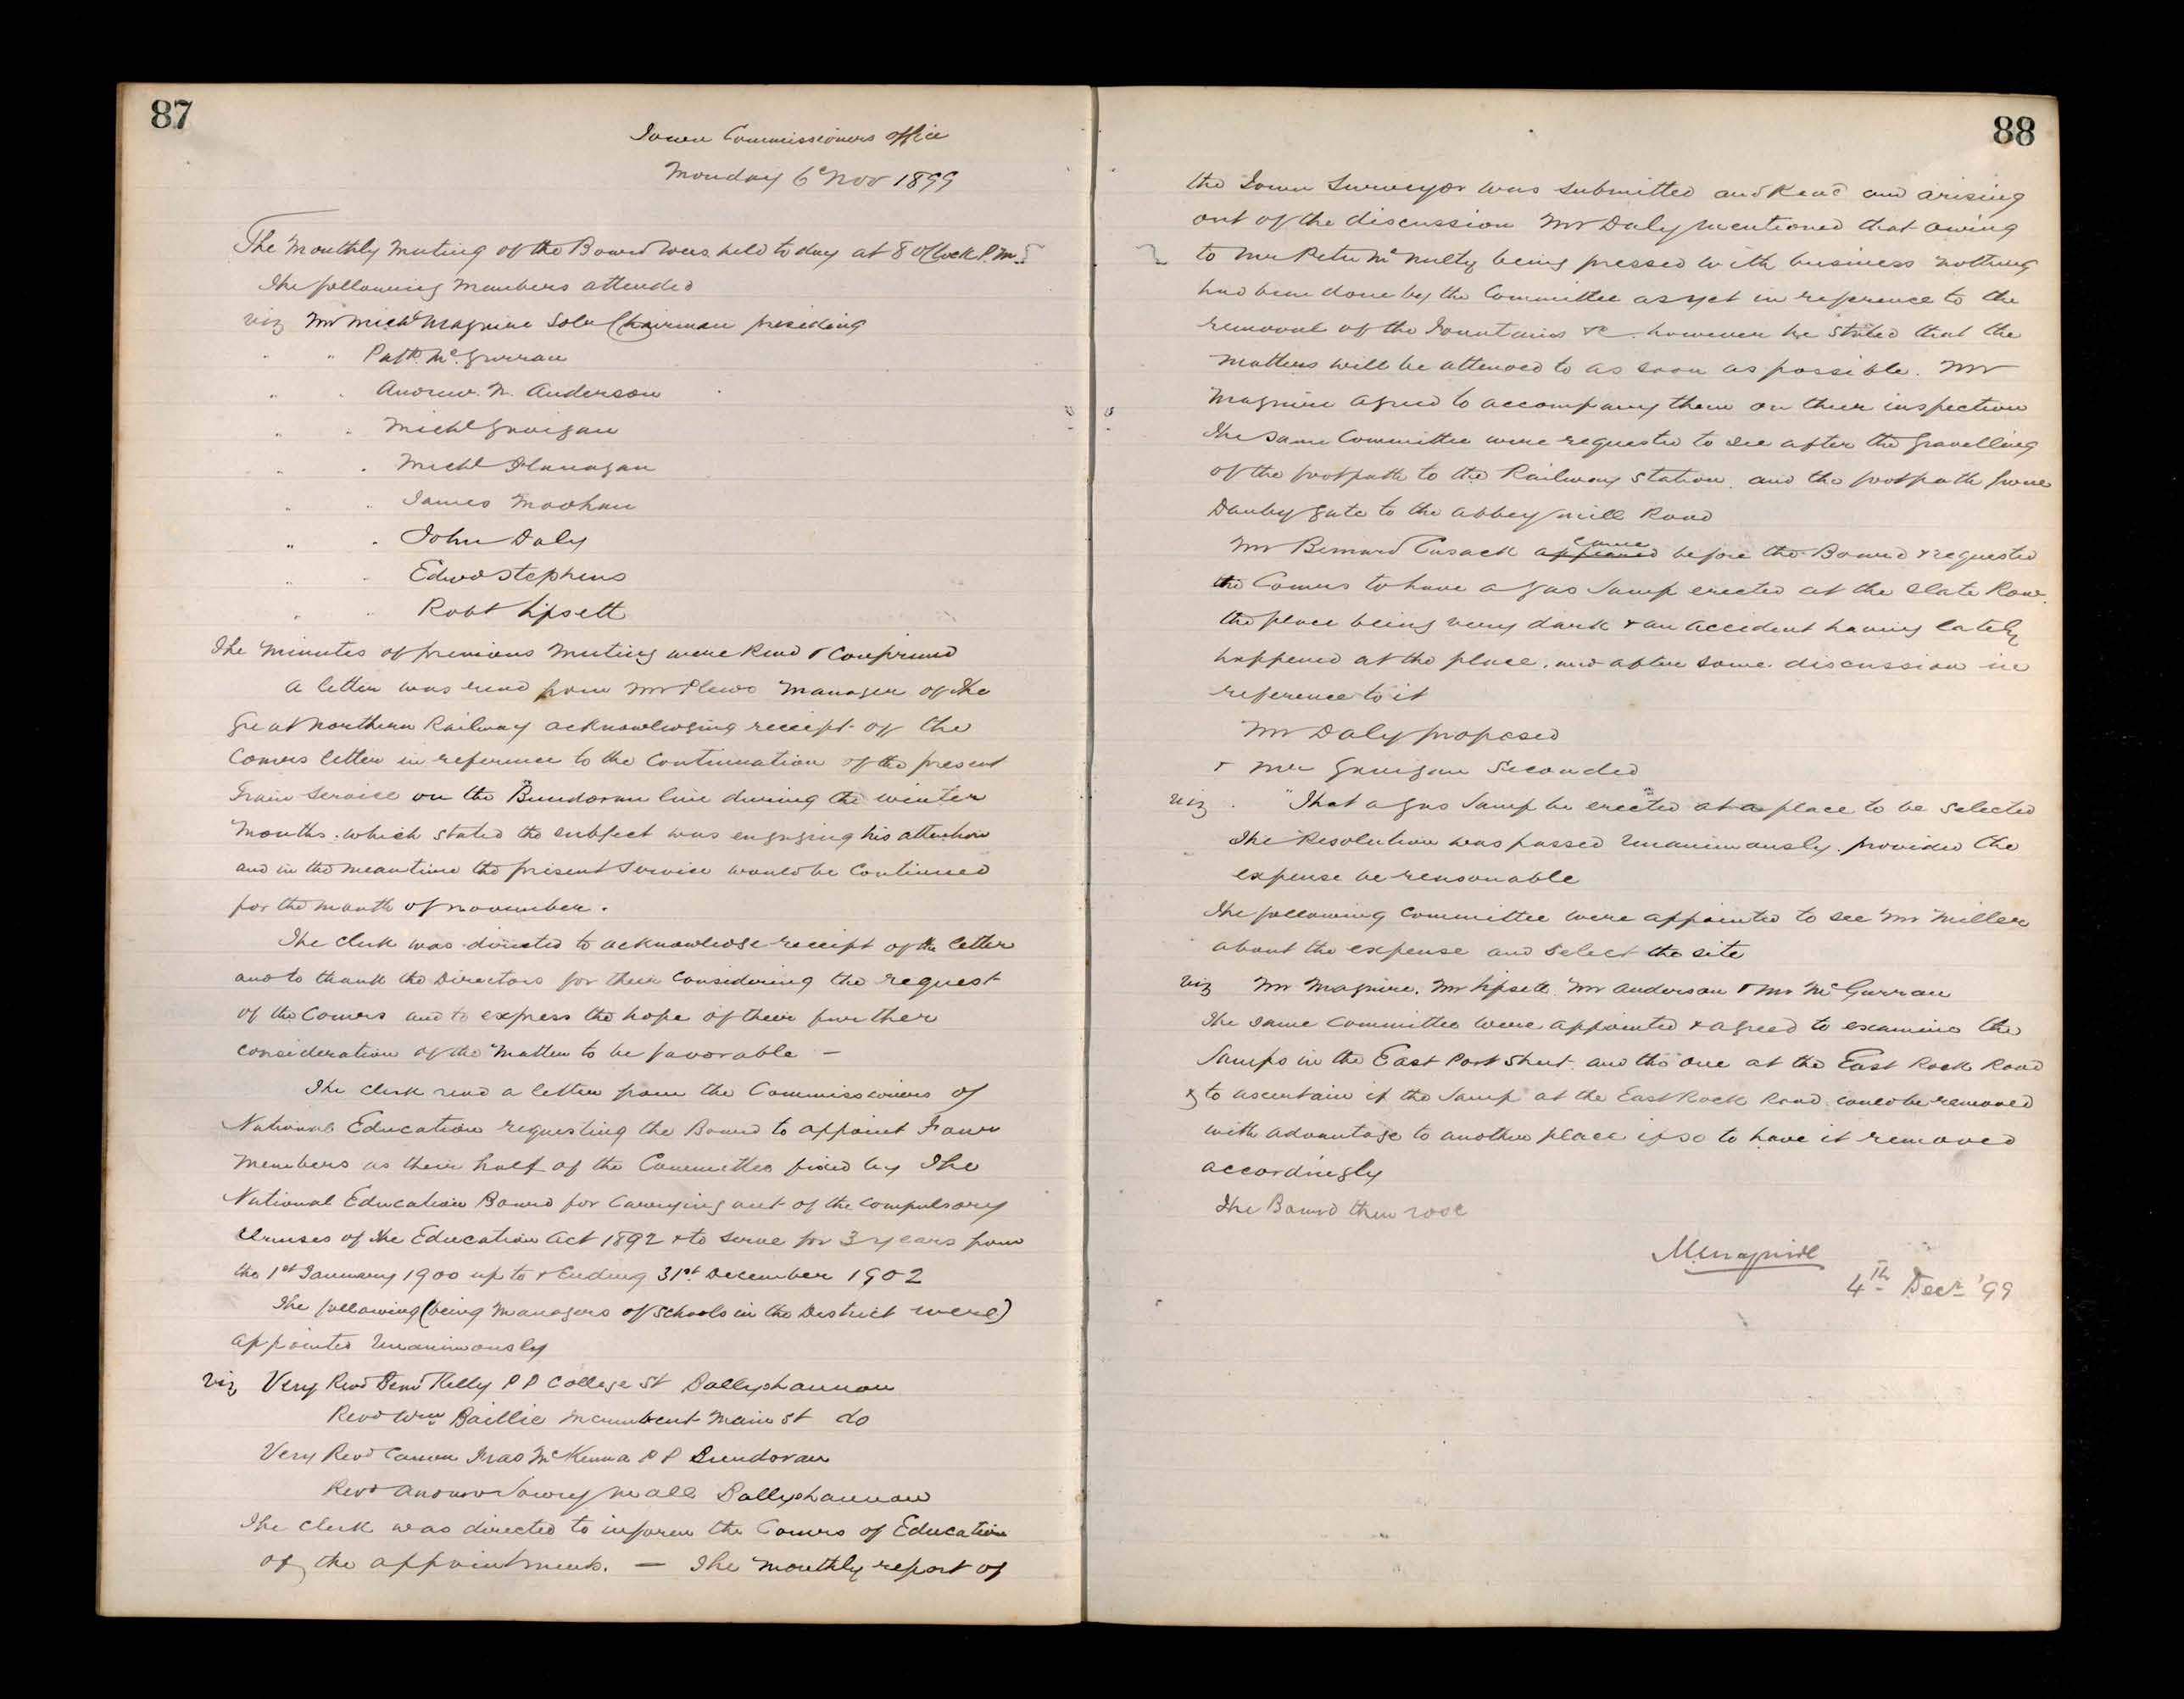 87
Town Commissioners office
Monday 6th Nov 1899
The Monthly Meeting of the Board was held to day at 8 O'Clock P.M.
The following Members attended
viz Mr Michl Maguire Solr Chairman presiding
" " Patk McGurran
" " Andrew N. Anderson
" " Michl Gavigan
" " Michl Flanagan
" " James Moohan
" " John Daly
" " Edwd Stephens
" " Robt Lipsett
The Minutes of previous Meeting were Read & Confirmed
A letter was read from Mr Plews Manager of the
Great Northern Railway acknowledging receipt of the
Comers letter in reference to the Continuation of the present
Train Service on the Bundoran line during the winter
Months. which stated the subject was engaging his attention
and in the meantime the present service would be Continued
for the month of November.
The Clerk was directed to acknowledge receipt of the letter
and to thank the Directors for their Considering the request
of the Comers and to express the hope of their further
consideration of the Matter to be favorable —
The clerk read a letter from the Commissioners of
National Education requesting the Board to appoint Four
Members as their half of the Committee fixed by The
National Education Board for Carrying out of the compulsory
Clauses of the Education Act 1892 & to serve for 3 years from
the 1st January 1900 up to & Ending 31st December 1902
The following (being Managers of Schools in the District were)
appointed Unanimously
viz Very Revd Kelly P P College St Ballyshannon
Revd Wm Baillie Incumbent Main St do
Very Revd Canon McKenna P P Bundoran
Revd Andrew Lowry Mall Ballyshannon
The Clerk was directed to inform the Comers of Education
of the appointments. — The Monthly report of
88
the Town Surveyor was submitted and Read and arising
out of the discussion Mr Daly mentioned that owing
to Mr Peter McNulty being pressed with business nothing
had been done by the Committee as yet in reference to the
removal of the Fountains &c. however he stated that the
Matters will be attended to as soon as possible. Mr
Maguire agreed to accompany them on their inspection
The same Committee were requested to see after the Gravelling
of the footpath to the Railway Station. and the footpath from
Danby gate to the Abbey mill Road
Mr Bernard Cusack appeared came before the Board & requested
the Comers to have a gas lamp erected at the Slate Row.
the place being very dark & an accident having lately
happened at the place. and after some discussion in
reference to it
Mr Daly proposed
& Mr Gavigan Seconded
viz. "That a gas lamp be erected at a place to be selected
The Resolution was passed Unanimously. provided the
expense be reasonable
The following Committee were appointed to see Mr Miller
about the expense and select the site
viz Mr Maguire. Mr Lipsett. Mr Anderson & Mr McGurran
The same Committee were appointed & agreed to examine the
lamps in the East Port Street and the one at the East Rock Road
& to ascertain if the lamp at the East Rock Road could be removed
with advantage to another place if so to have it removed
accordingly
The Board then rose
M Maguire
4th Decr '99